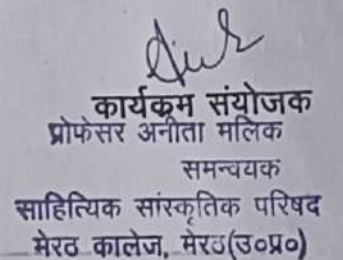 कार्यक्रम संयोजक
प्रोफेसर अनीता मलिक
समन्वयक
साहित्यिक सांस्कृतिक परिषद
मेरठ कालेज, मेरठ(उ०प्र०)